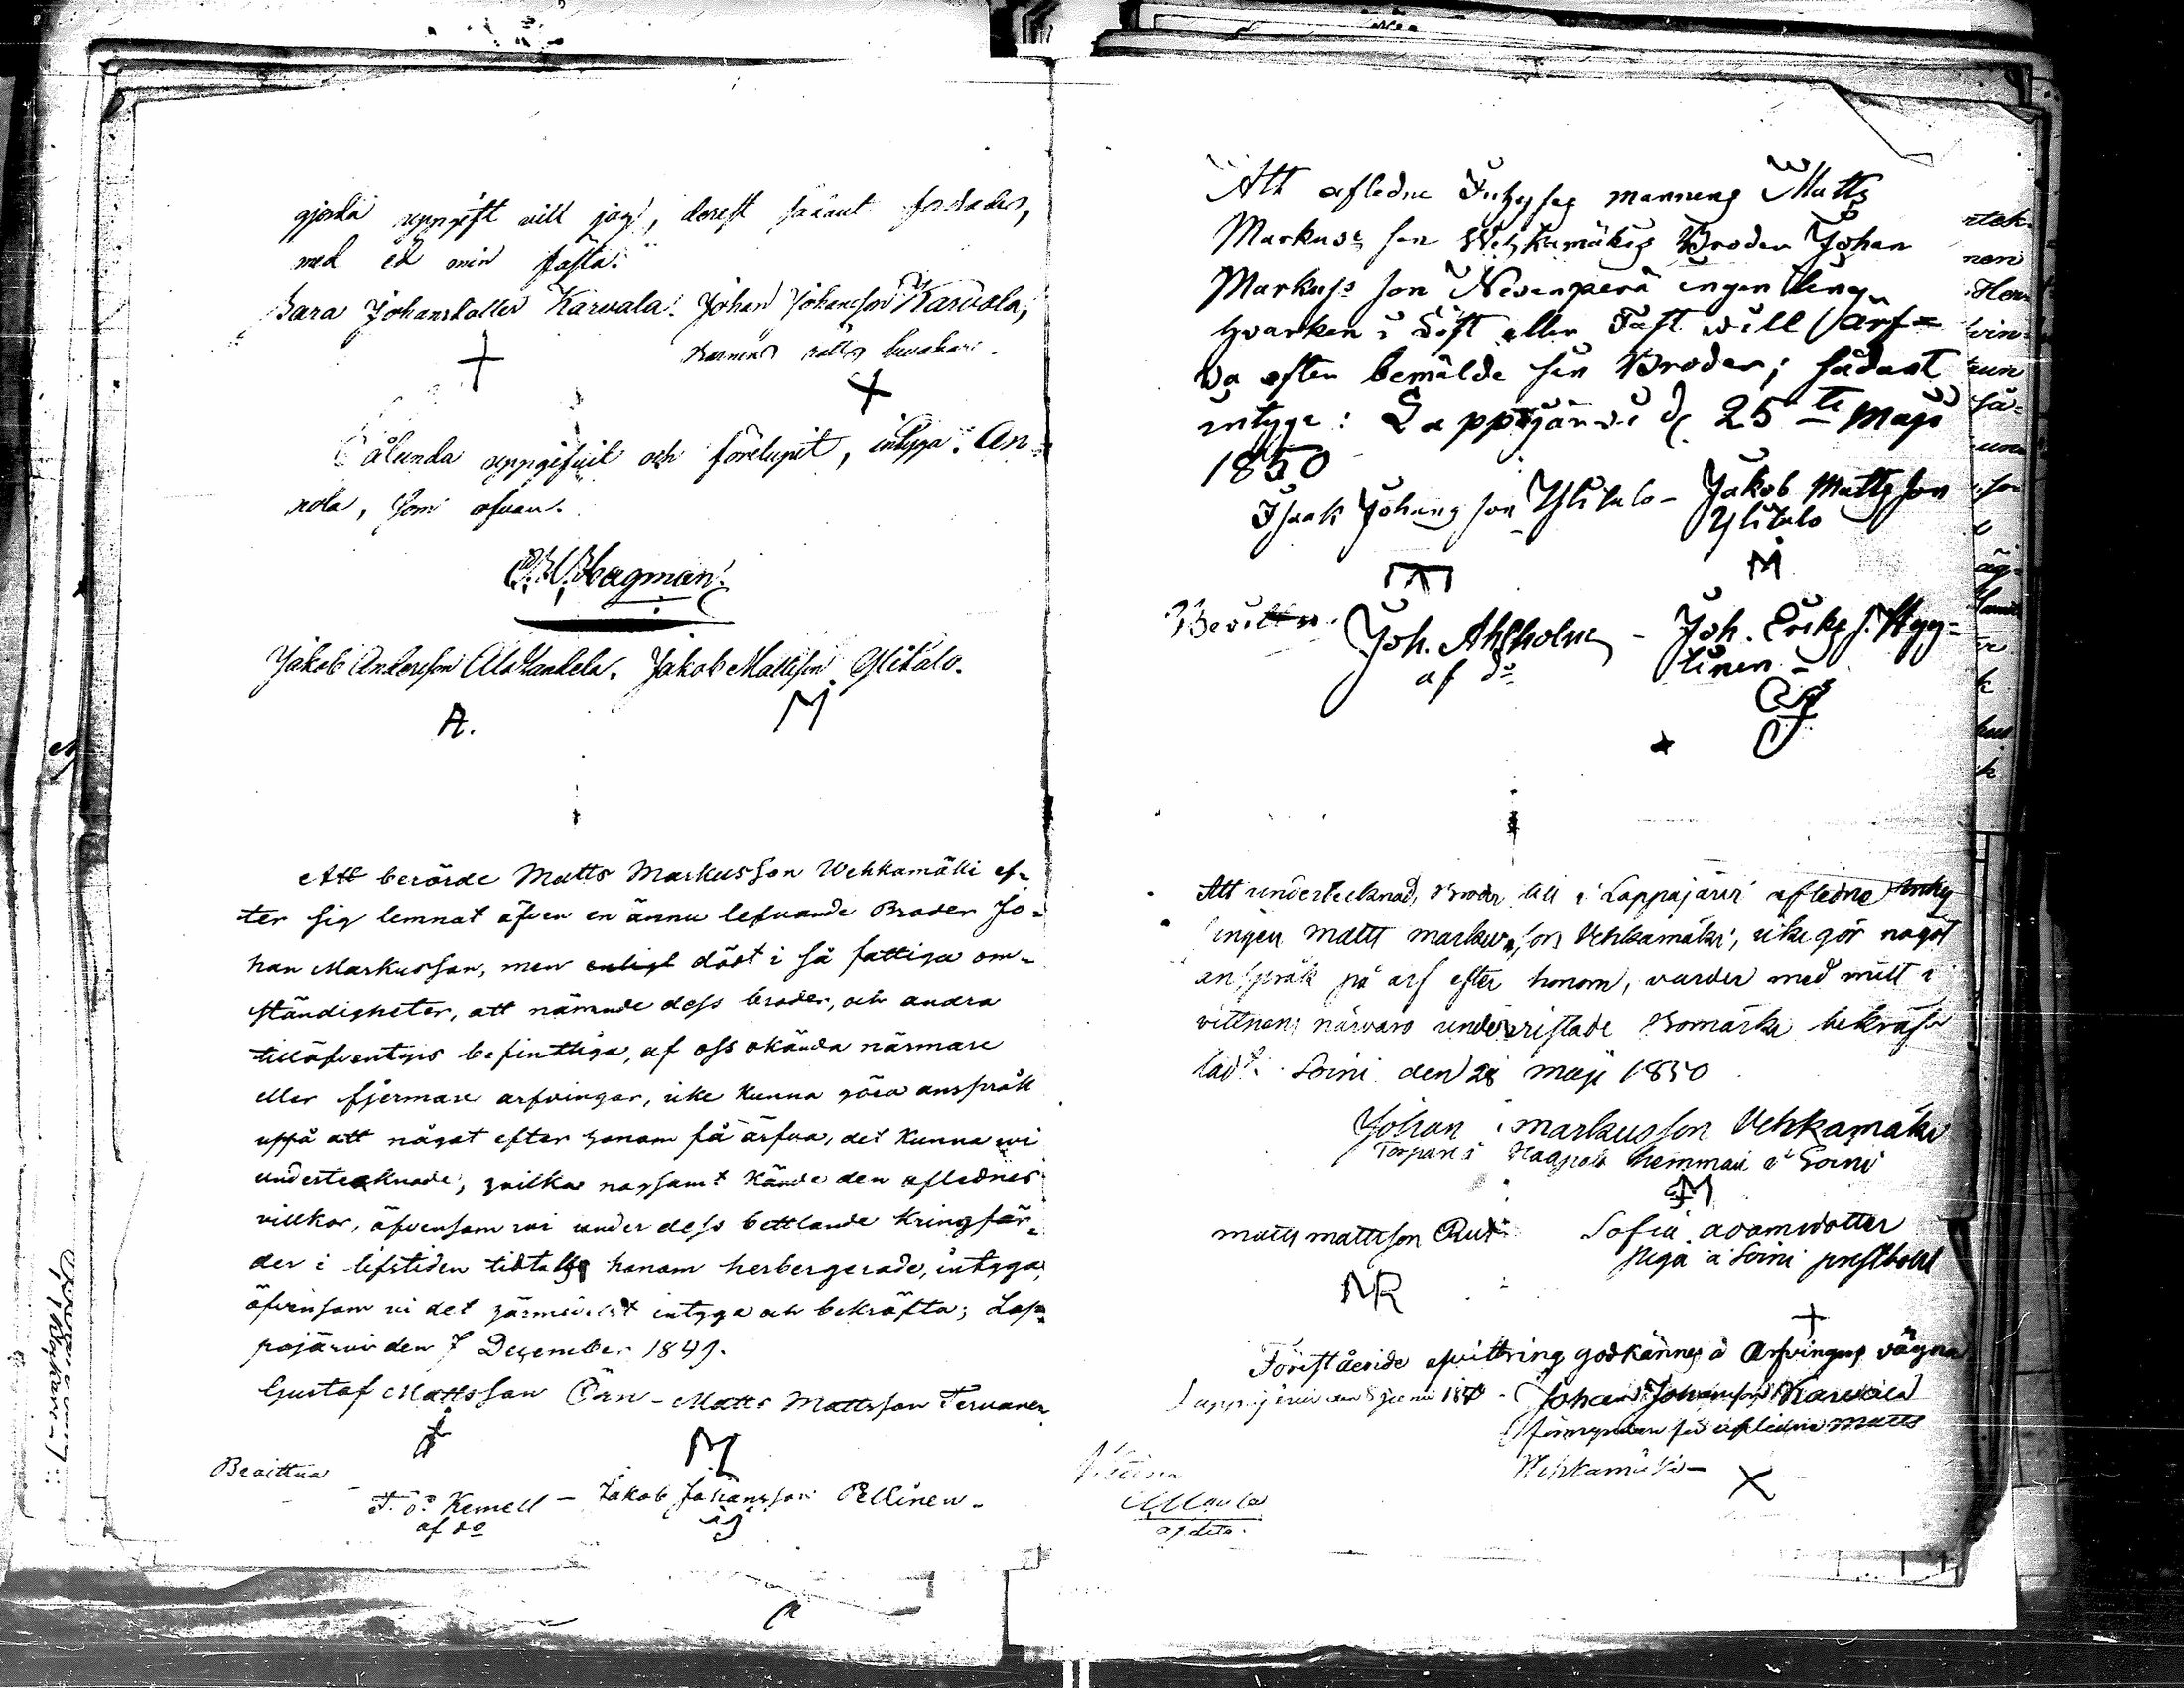 gjorda uppgift vill jag, derest sådant fordades,
med ed min fästa.
Sara Johansdotter Karvala. Johan Johansson Karvala,
barnens rätts bevakare.
Sålunda uppgifvit och förelupit, intyga. An=
nola, som ofvan.
Hagman
Jakob Andersson Ala Mandela. Jakob Mattsson Ylitalo.
A. M
Att berörde Matts Markusson Wehkamäki ef-
ter sig lemnat äfven en ännu lefvande Broder Jo=
han Markusson, men enligt dödt i så fattiga om-
ständigheter, att nämnde dess broder, och andra
tilläfventyrs befintliga, af oss okända närmare
eller fjermare arfvingar, icke kunna göra anspråk
uppå att något efter honom få ärfva, det kunna wi
undertecknade, hvilka noksamt kände den aflednes
villkor, äfvensom wi under dess bettlande kringfär-
der i lifstiden honom herbergerade, intyga,
äfvensom vi det härmedelst intyga och bekräfta; Lap-
pajärvi den 7 December 1849.
Gustaf Mattsson Örn - Matts Mattsson Tervanen
M
Bevittna
Kemell - Jakob Johansson Pellinen.
af do
Att afledne Inhyses mannens Matts
Markus son Wehkamäkis Broder Johan
Markuss son Nevanperä ingenting
hvarken i Löst eller Fast will ärf=
va efter bemälde sin Broder; sådant
intyga: Lappajärvi d. 25 te Maji
1850
Isaak Johans son Ylitalo - Jakob Matts son
Ylitalo
M
Bevittna. Joh. Ahlholm - Joh. Eriks s. Hyy=
af do tinen -
Att undertecknad, Broder till i Lappajärvi afledne Inhy
singen Matts Markusson Vehkamäki, icke gör något
anspråk på arf efter honom, varder med mitt i
vittnens närvaro underristade Bomärke bekräf
tadt. Soini den 28 Maji 1850
Johan Markusson Vehkamäki
Torpare i hemman i Soini
M
Matts Mattsson Sofia Adamsdotter
Piga å Soini prestbohl
MR
Förestående afvittring godkännes å Arfvinges vägna
Lappajärvi den Juni 1850 - Johan Johansson Karvala
förmyndare för aflednes Matts
Wehkamäki -
Vittna
af dito.